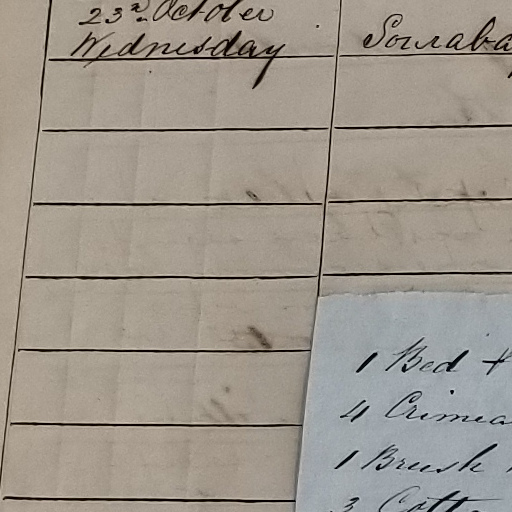 23rd October
Wednesday
Souraba
1 Bed &
4 Crimea
1 Brush
3 Cott